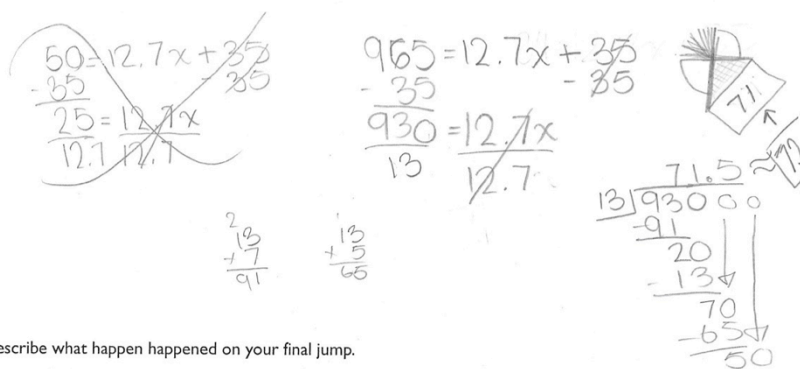 50=12.7x+35
-35 -35
25=12.7x
12.7 12.7
965=12.7x+35
-35 -35
930=12.7x
13 12.7
71
71.5≈72
13)93000
-91
20
-13
70
-65
50
2
13
+7
91
1
13
+5
65
escribe what happen happened on your final jump.